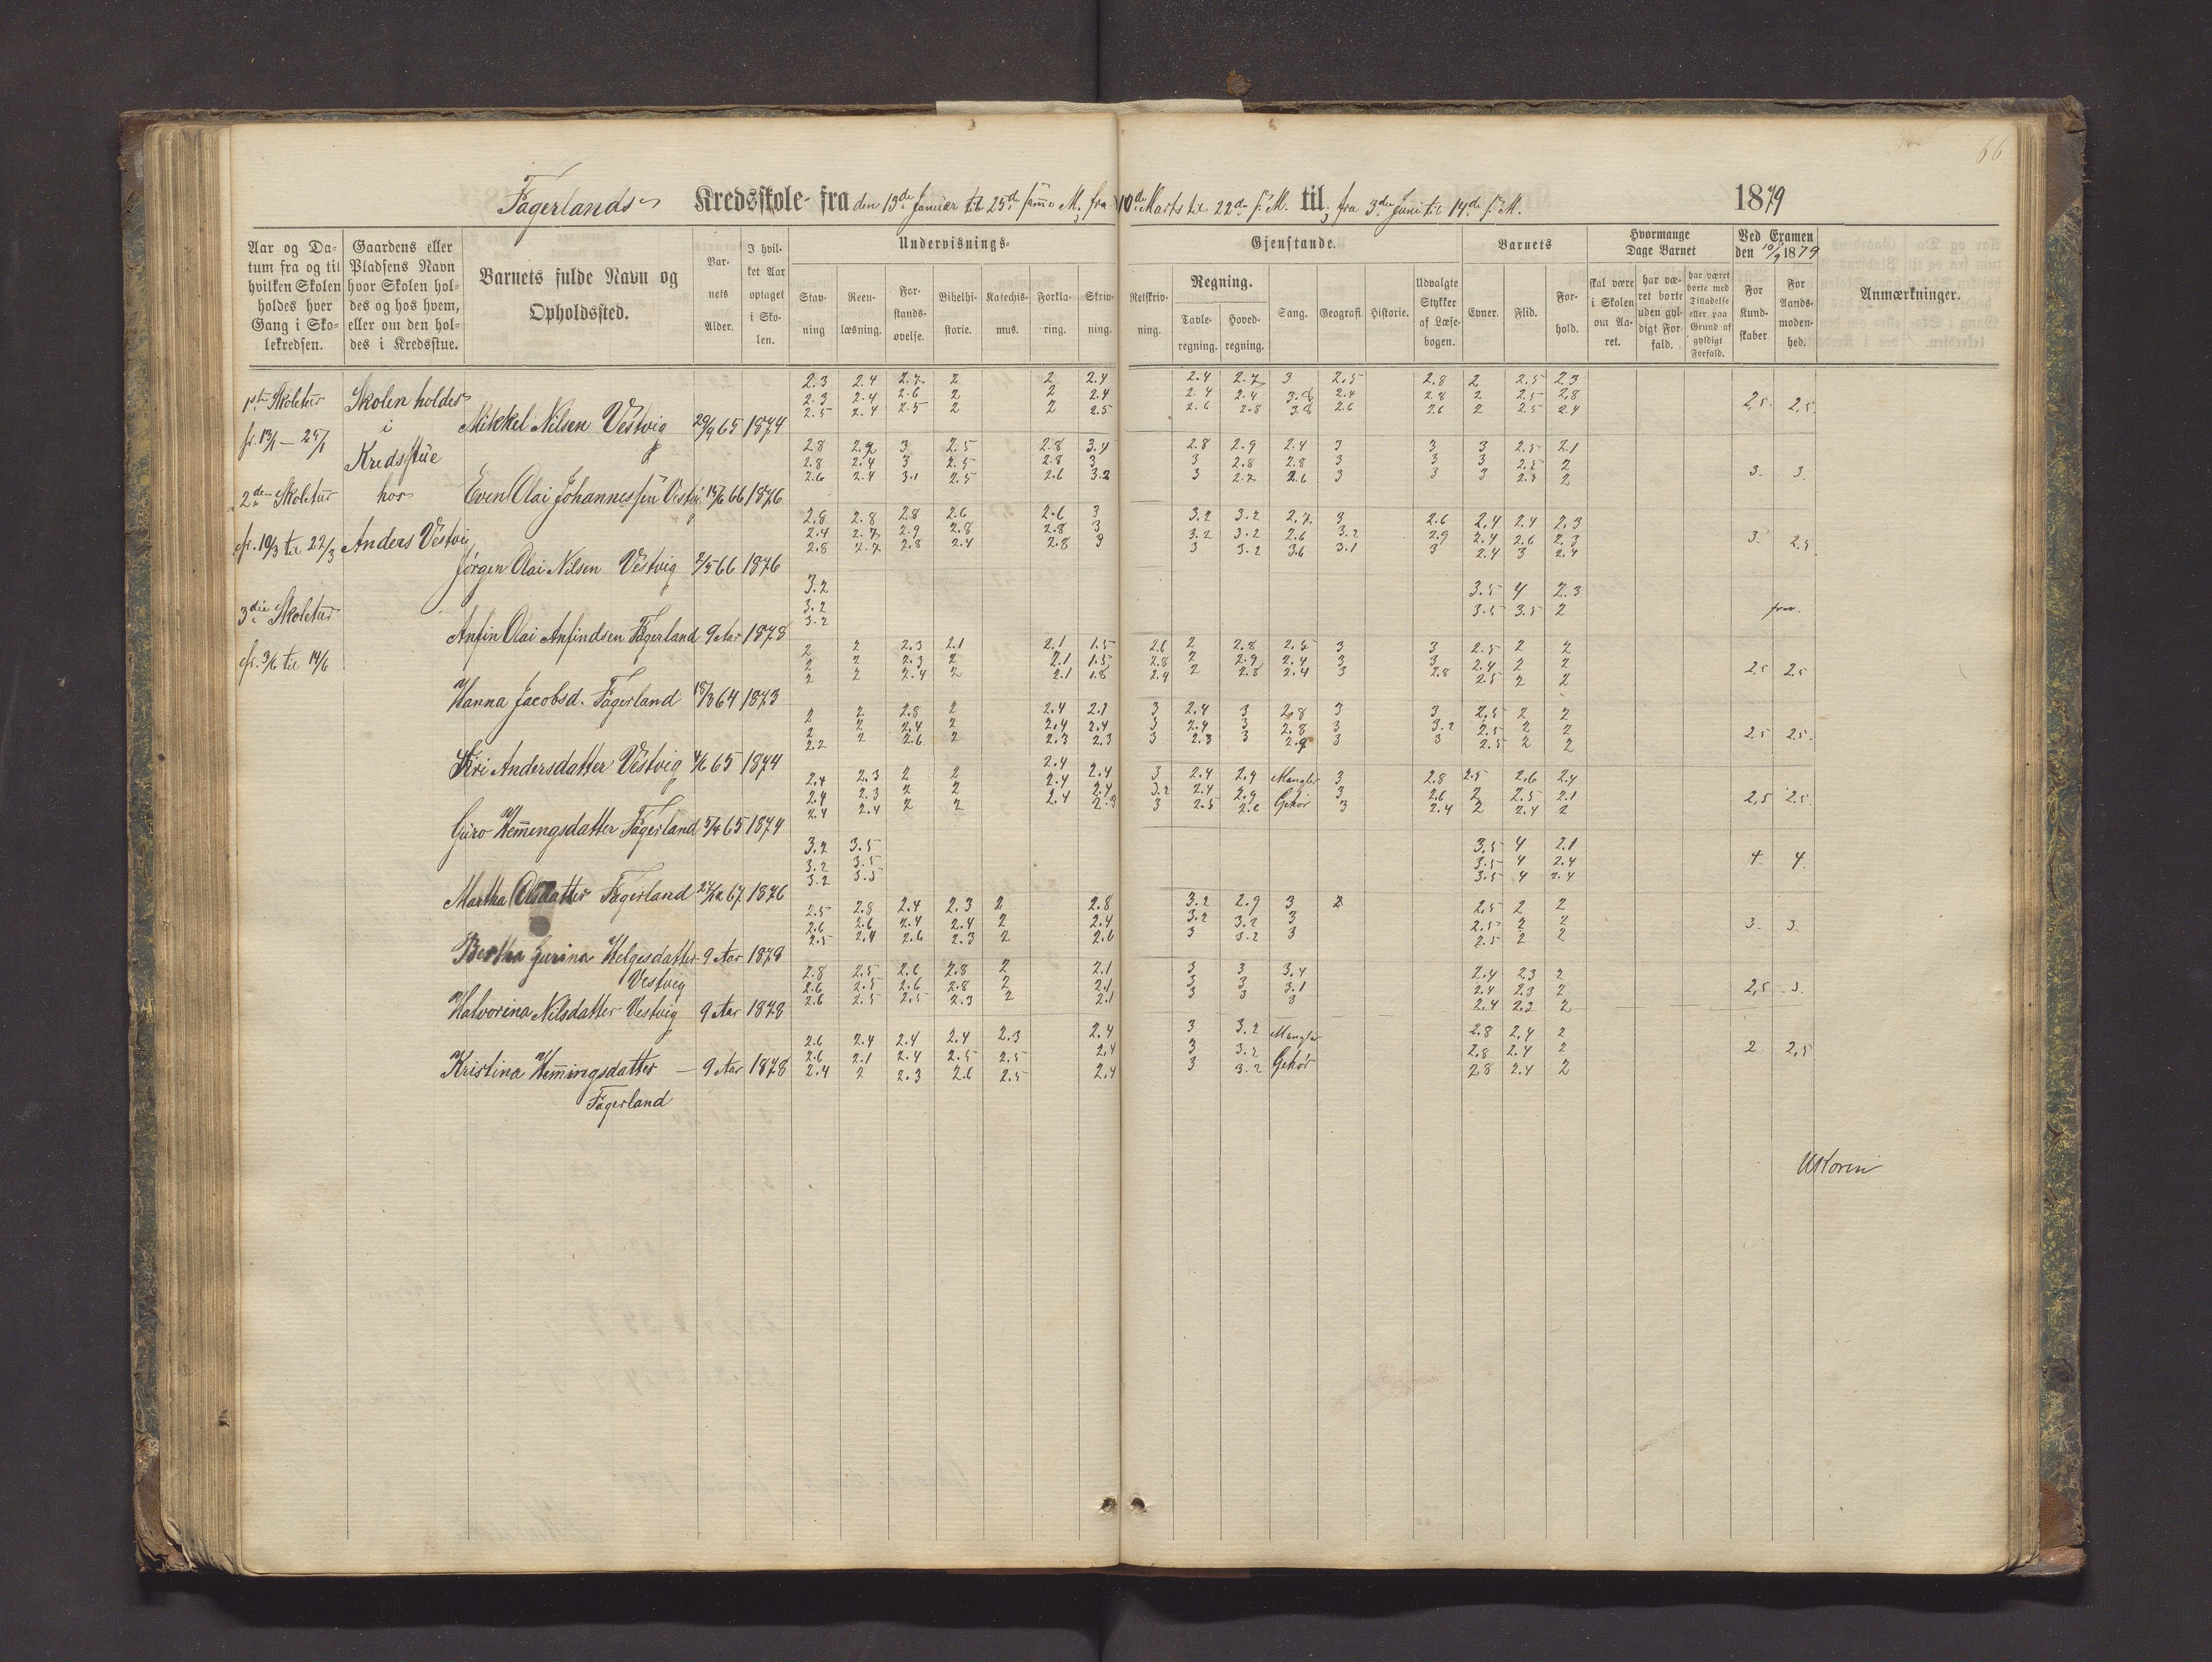 66
Fagerlands Kredsskole fra den 13de Januar til 25de samme M., fra 10de Marts til 22de s. M. til, fra 3die Juni til 14de s. M. 1879
Aar og Datum fra og til hvilken Skolen holdes hver Gang i Skolekredsen.
Gaardens eller Pladsens Navn hvor Skolen holdes og hos hvem, eller om den holdes i Kredsstue.
Barnets fulde Navn og Opholdssted.
Barnets Alder.
I hvilket Aar optaget i Skolen.
Undervisnings-
Stavning
Reenlæsning.
Forstandsøvelse.
Bibelhistorie.
Katechismus.
Forklaring.
Skrivning.
Gjenstande.
Retskrivning.
Regning.
Tavleregning.
Hovedregning.
Sang.
Geografi.
Historie.
Udvalgte Stykker af Læsebogen.
Barnets
Evner.
Flid.
Forhold.
Hvormange Dage Barnet
skal være i Skolen om Aaret.
har været borte uden gyldigt Forfald.
har været borte med Tilladelse eller paa Grund af gyldigt Forfald.
Ved Examen den 10/9 1879
For Kundskaber
For Aandsmodenhed.
Anmærkninger.
1ste Skoletur
fr. 13/1 — 25/1
2den Skoletur
fr. 10/3 til 22/3
3die Skoletur
fr. 3/6 til 14/6
Skolen holdes
i
Kredsstue
hos
Anders Vestvig
2.3 2.4 2.7 2 2 2.4 2.4 2.7 3 2.5 2.8 2 2.5 2.3
2.3 2.4 2.6 2 2 2.4 2.4 2.4 3.8 2.4 2.8 2 2.5 2.8
2.5 2.4 2.5 2 2 2.5 2.6 2.8 3.8 2.6 2.6 2 2.5 2.4
Mikkel Nilsen Vestvig 29/9 65 1874 2,5. 2,5.
2.8 2.9 3 2.5 2.8 3.4 2.8 2.9 2.4 3 3 3 2.5 2.1
2.8 2.4 3 2.5 2.8 3 3 2.8 2.8 3 3 3 2.5 2
2.6 2.4 3.1 2.5 2.6 3.2 3 2.7 2.6 3 3 3 2.5 2
Even Olai Johannessen Vestvig 15/6 66 1876 3. 3.
2.8 2.8 2.8 2.6 2.6 3 3.2 3.2 2.7 3 2.6 2.4 2.4 2.3
2.4 2.7 2.9 2.8 2.8 3 3.2 3.2 2.6 3.2 2.9 2.4 2.6 2.3
2.8 2.7 2.8 2.4 2.8 3 3 3.2 3.6 3.1 3 2.4 3 2.4
Jørgen Olai Nilsen Vestvig 2/5 66 1876 3. 2.5.
3.2 3.5 4 2.3
3.2 3.5 3.5 2
3.2
Anfin Olai Anfindsen Fagerland 9 Aar 1878 frv.
2 2 2.3 2.1 2.1 1.5 2.6 2 2.8 2.5 3 3 2.5 2 2
2 2 2.3 2 2.1 1.5 2.8 2 2.9 2.4 3 3 2.4 2 2
2 2 2.4 2 2.1 1.8 2.4 2 2.8 2.4 3 2.8 2.5 2 2
Hanna Jacobsd. Fagerland 18/3 64 1873 2,5 2,5
2 2 2.8 2 2.4 2.1 3 2.4 3 2.8 3 3 2.5 2 2
2 2 2.4 2 2.4 2.4 3 2.4 3 2.8 3 3.2 2.5 2 2
2.2 2 2.6 2 2.3 2.3 3 2.3 3 2.9 3 3 2.5 2 2
Siri Andersdatter Vestvig 4/6 65 1874 2,5 2,5.
2.4 2.3 2 2 2.4 2.4 3 2.4 2.9 Mangler 3 2.8 2.5 2.6 2.4
2.4 2.3 2 2 2.4 2.4 3.2 2.4 2.9 Gehør 3 2.6 2 2.5 2.1
2.4 2.4 2 2 2.4 2.3 3 2.5 2.6 3 2.4 2 2.4 2
Guro Hemmengsdatter Fagerland 5/4 65 1874 2,5 2.5.
3.2 3.5 3.5 4 2.1
3.2 3.5 3.5 4 2.4
3.2 3.5 3.5 4 2.4
Martha Olsdatter Fagerland 24/12 67 1876 4. 4.
2.5 2.8 2.4 2.3 2 2.8 3.2 2.9 3 2 2.5 2 2
2.6 2.6 2.4 2.4 2 2.4 3.2 3.2 3 2.5 2 2
2.5 2.4 2.6 2.3 2 2.6 3 3.2 3 2.5 2 2
Bertha Gurina Helgesdatter 9 Aar 1878 3. 3.
Vestvig
2.8 2.5 2.6 2.8 2 2.1 3 3 3.4 2.4 2.3 2
2.6 2.5 2.6 2.8 2 2.1 3 3 3.1 2.4 2.3 2
2.6 2.5 2.5 2.3 2 2.1 3 3 3 2.4 2.3 2
Halvorina Nilsdatter Vestvig 9 Aar 1878 2,5 3.
2.6 2.4 2.4 2.4 2.3 2.4 3 3.2 Mangler 2.8 2.4 2
2.6 2.1 2.4 2.5 2.5 2.4 3 3.2 Gehør 2.8 2.4 2
2.4 2 2.3 2.6 2.5 2.4 3 3.2 2.8 2.4 2
Kristina Hemmingsdatter — 9 Aar 1878 2. 2,5
Fagerland